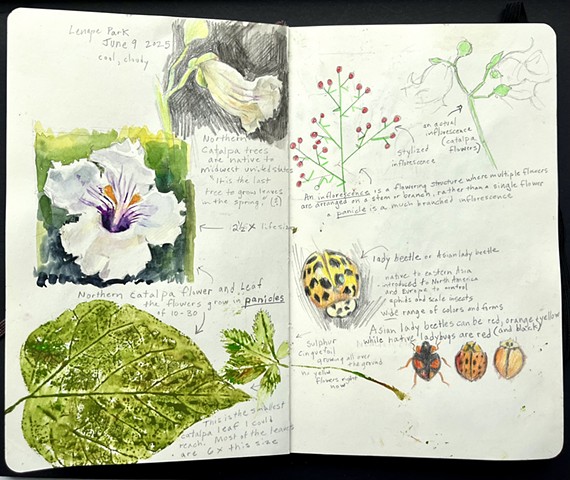 Lenape Park
June 9 2025
cool, cloudy
Northern
Catalpa trees
are native to
midwest united states
It is the last
tree to grow leaves
in the spring.
2½ X lifesize
Northern catalpa flower and Leaf
the flowers grow in panicles
of 10-30
This is the smallest
catalpa leaf I could
reach. Most of the leaves
are 6x this size
stylized
inflorescence
an actual
inflorescence
(catalpa
flowers)
An inflorescence is a flowering structure where multiple flowers
are arranged on a stem or branch, rather than a single flower
a panicle is a much branched inflorescence
lady beetle or Asian lady beetle
native to eastern Asia
introduced to North America
and Europe to control
aphids and scale insects
wide range of colors and forms
Asian lady beetles can be red, orange, yellow
while native ladybugs are red (and black)
Sulphur
Cinquefoil
growing all over
the ground
no yellow
flowers right
now